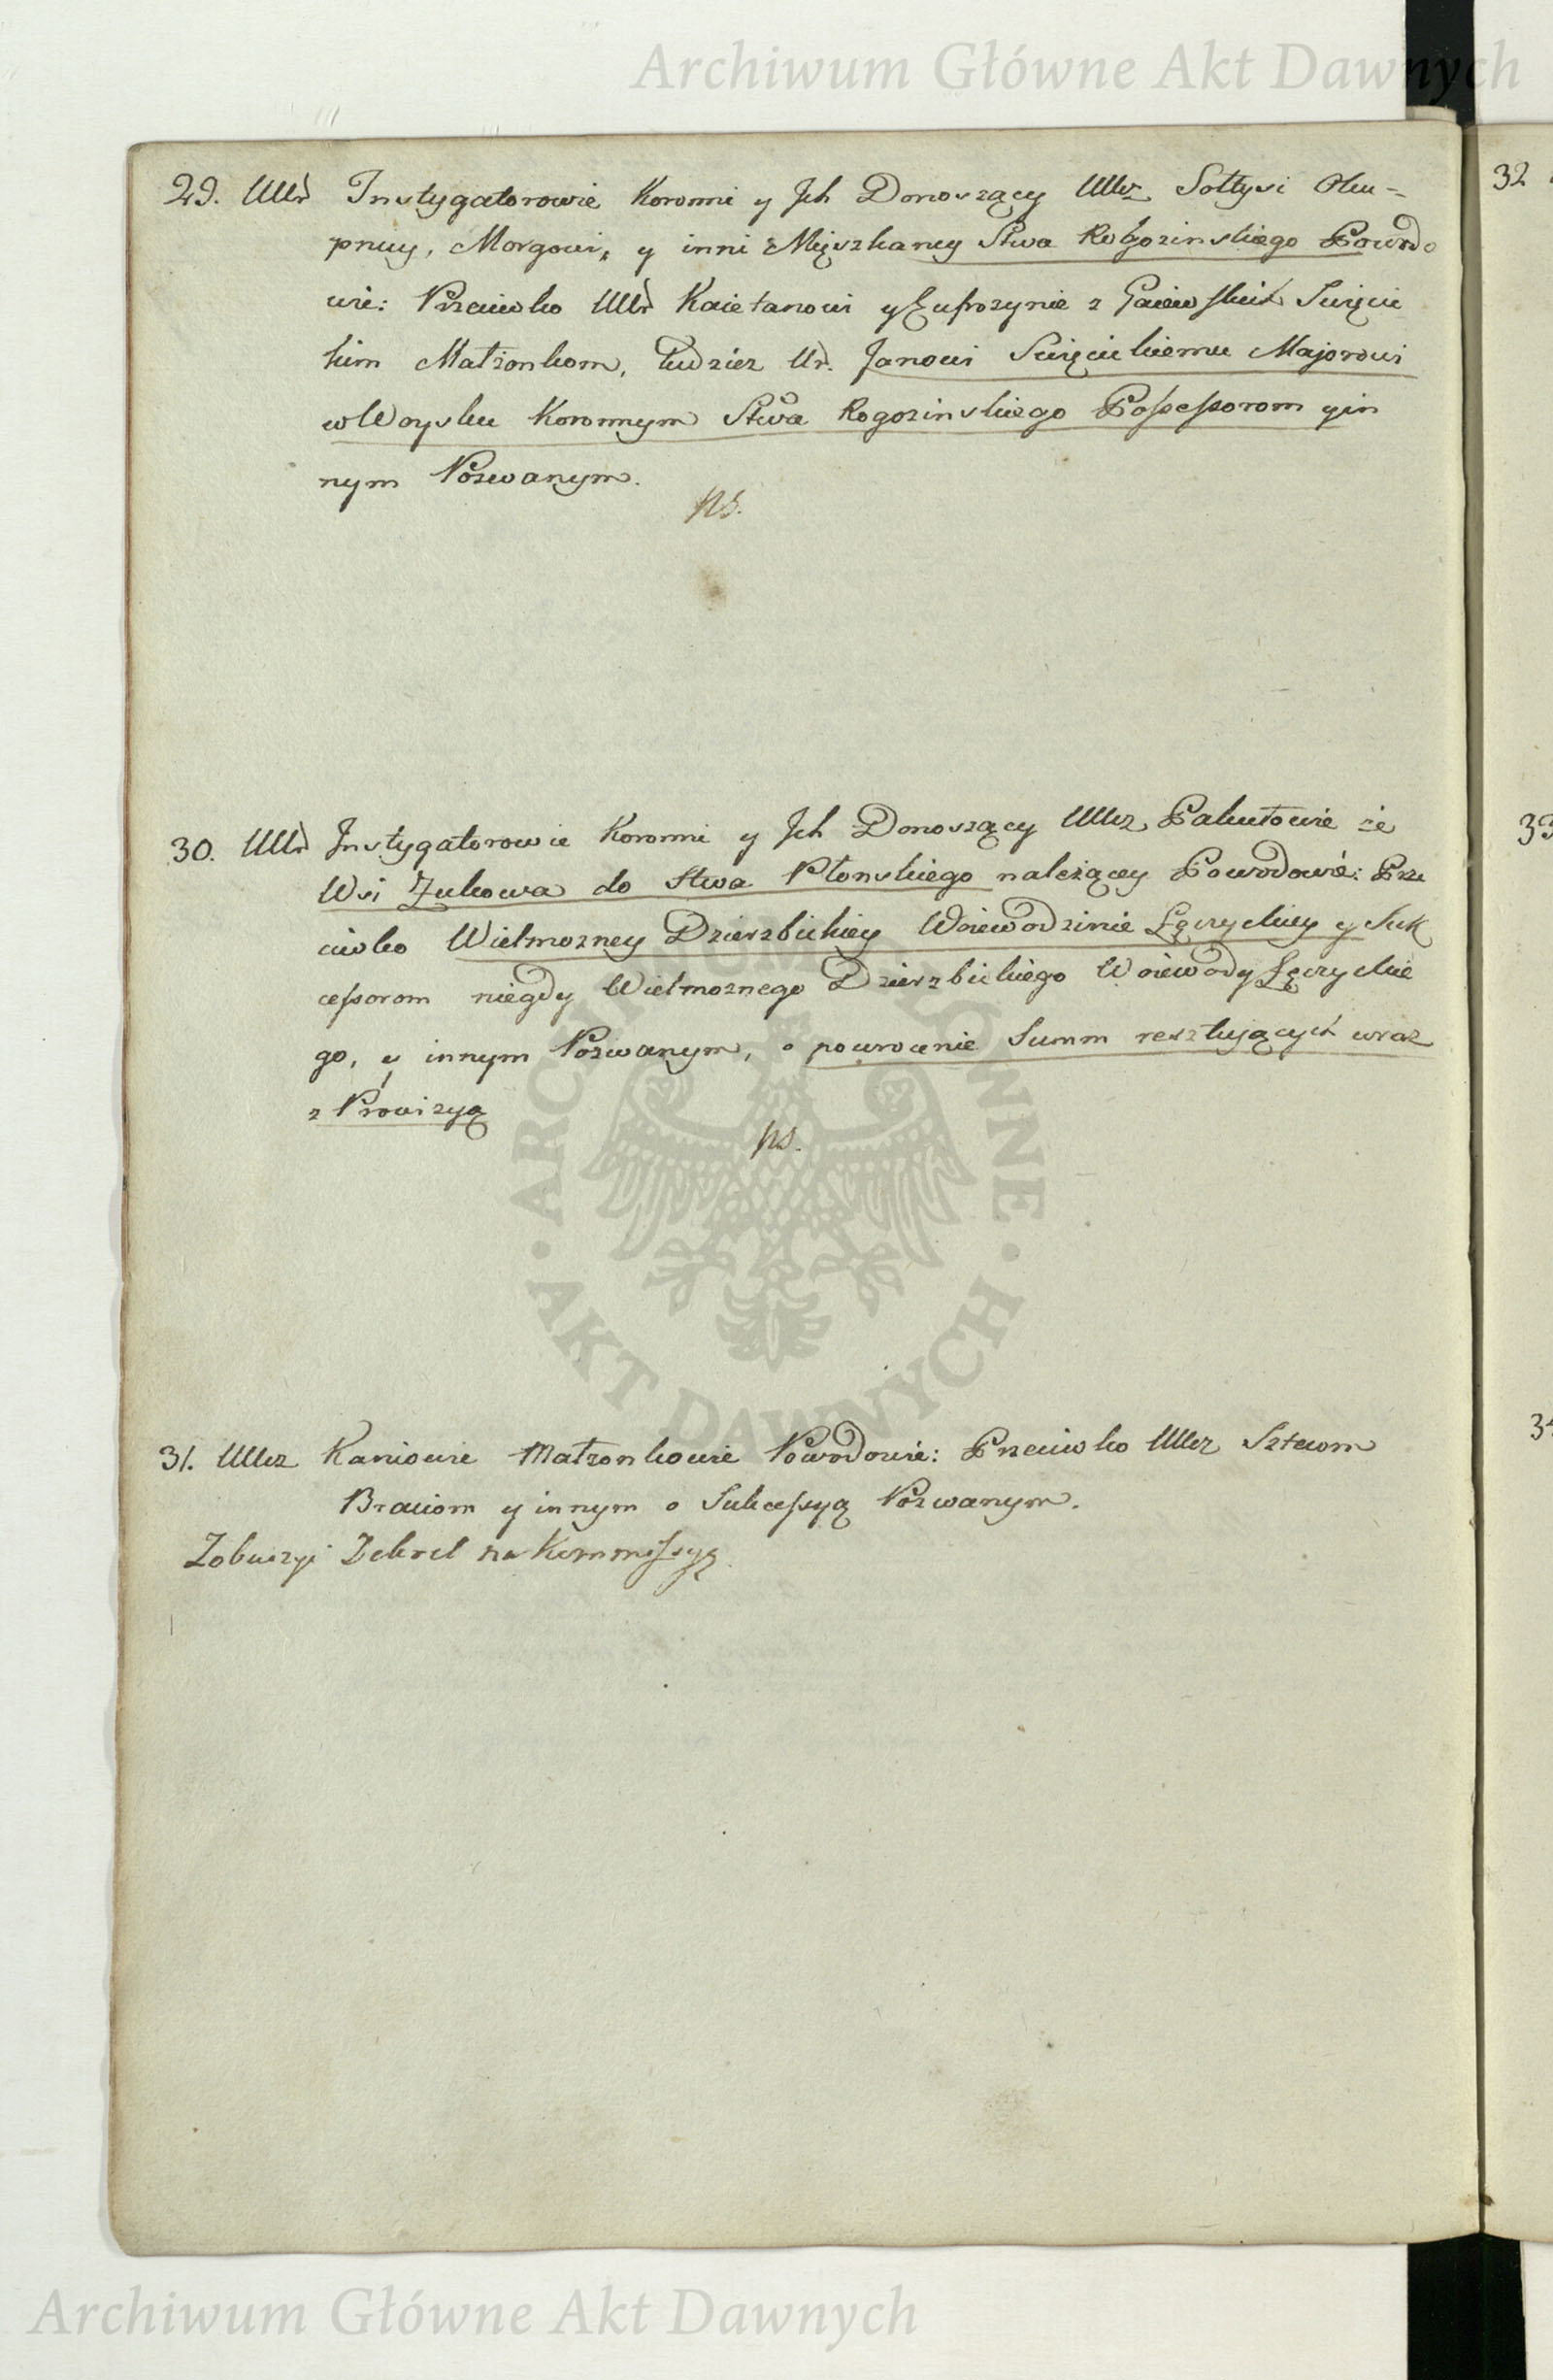 Archiwum Główne Akt Dawnych
29. UUr Instygatorowie Koronni y Jch Donoszący UUcz Sołtysi Oku=
pnicy, Morgowi, y inni Mięszkańcy Stwa Rogozinskiego Powodo
wie: Przeciwko UUr Kaietanowi y Eufrozynie z Gaiewskich Swięcic
kim Małżonkom, tudzież Ur. Janowi Swięcickiemu Majorowi
w Woysku Koronnym Stwa Rogozinskiego Possessorom y in
nym Pozwanym.
ps.
30. UUr Instygatorowie Koronni y Jch Donoszący UUcz Pakutowie ze
Wsi Żukowa do Stwa Płonskiego należącey Powodowie: Prze
ciwko Wielmozney Dzierzbickiey Woiewodzinie Łęczyckiey y Suk
cessorom niegdy Wielmoznego Dzierzbickiego Woiewody Łęczyckie
go, y innym Pozwanym, o powrocenie Summ resztujących wraz
z Prowizyą
ps.
31. UUcz Kaniowie Małzonkowie Powodowie: Przeciwko UUcz
Braciom y innym o Sukcessyą Pozwanym.
Zobaczyć Dekret na Kommissyą
32
33
34
ARCHIWUM GŁÓWNE
AKT DAWNYCH
Archiwum Główne Akt Dawnych